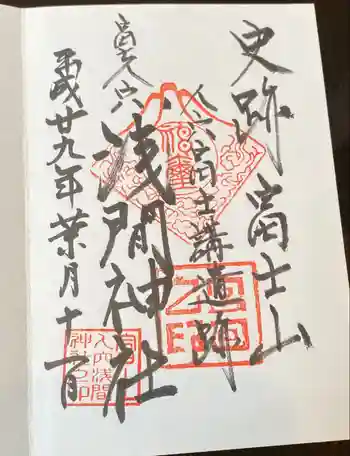 史跡 富士山
人穴富士講遺跡
富士人穴
浅間神社
平成廿九年葉月十一日